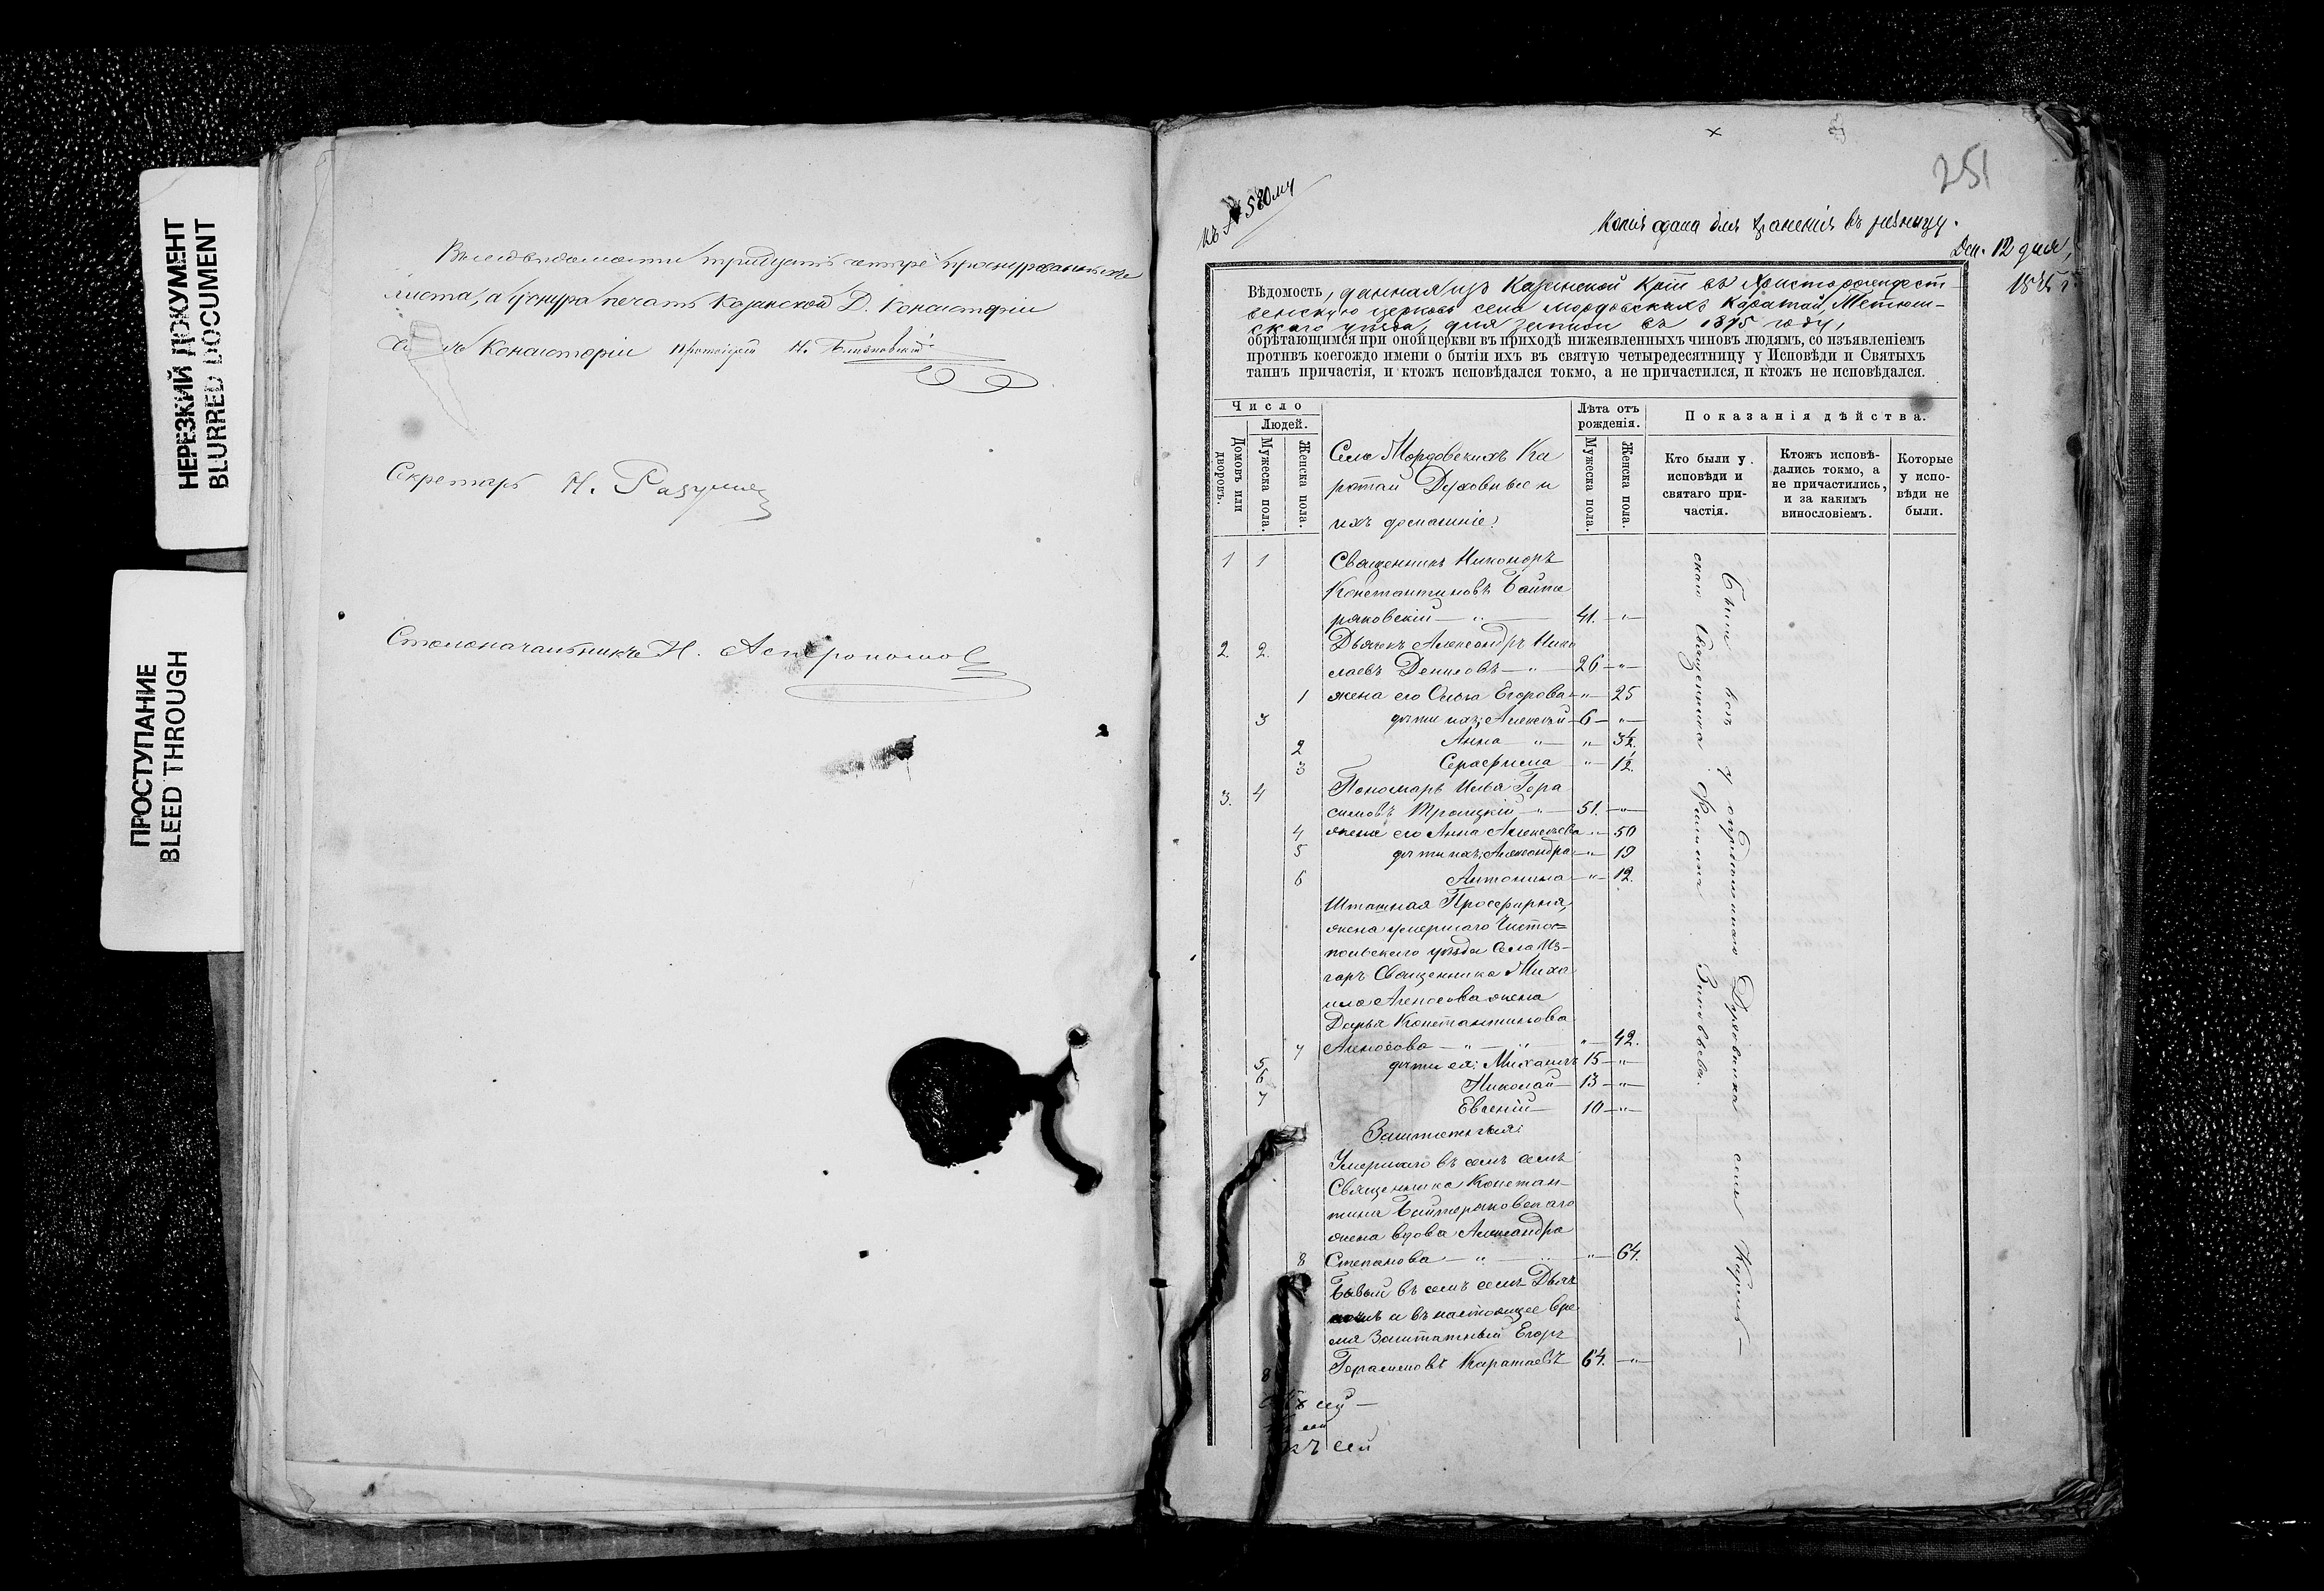 НЕРЕЗКИЙ ДОКУМЕНТ
BLURRED DOCUMENT
ПРОСТУПАНИЕ
BLEED THROUGH
В сей ведомости тридцать четыре прошнурованныхъ
листа, а у шнура печать Казанской Д. Консисторіи
Консисторіи Протоіерей
Секретарь Н. Разумовъ
Столоначальникъ Н. Аспероновъ
251
къ № 580му
Копія сдана для храненія въ ризницу.
Ден. 12 дня,
Вѣдомость, данная изъ Казанской въ Христорождест-
венскую церковь села Мордовскихъ Каратай, Тетюш-
скаго уѣзда, для записи въ 1875 году,
обрѣтающимся при оной церкви въ приходѣ нижеявленныхъ чиновъ людямъ, со изъявленіемъ
противъ коегождо имени о бытіи ихъ въ святую четыредесятницу у Исповѣди и Святыхъ
таинъ причастія, и ктожъ исповѣдался токмо, а не причастился, и ктожъ не исповѣдался.
Число
Людей.
Домовъ или дворовъ.
Мужеска пола.
Женска пола.
Лѣта отъ рожденія.
Мужеска пола.
Женска пола.
Показанія дѣйства.
Кто были у исповѣди и святаго причастія.
Ктожъ исповѣдались токмо, а не причастились, и за какимъ винословіемъ.
Которые у исповѣди не были.
Село Мордовскихъ Ка
ратай Духовные и
ихъ домашніе:
1 1 Священникъ Никоноръ
Константиновъ Байте
ряковскій — " — 41. — " —
2. 2. Дьячекъ Александръ Нико
лаевъ Денисовъ — " — 26 — " —
1 жена его Ольга Егорова — " — 25
3 дѣти ихъ: Алексѣй — 6 — " —
2 Анна — " — " — 3½.
3 Серафима — " — ½.
3. 4 Пономарь Илья Гера
симовъ Троицкій — " — 51. — " —
4 жена его Анна Алексѣева " — 50
5 дѣти ихъ: Александра — " — 19
6 Антонина — " — 12.
Штатная Просфирня,
жена умершаго Чисто=
польскаго уѣзда Села Из-
гаръ Священника Миха
ила Агеносова жена
Дарья Константинова
7 Агеносова — " — " — 42.
5 дѣти ея: Михаилъ 15 — " —
6 Николай — 13 — " —
7 Евгеній — 10 — " —
Заштатныя:
Умершаго въ семъ селѣ
Священника Констан-
тина Байтеряковскаго
жена вдова Александра
8 Степанова — " — " — 64.
Бывый въ семъ селѣ Дьяч
комъ и въ настоящее вре
мя Заштатный Егоръ
8 Герасимовъ Каратаевъ 64. — " —
Были всѣ у опредѣленнаго Духовника села
скаго Священника Филиппа Зиновьева.